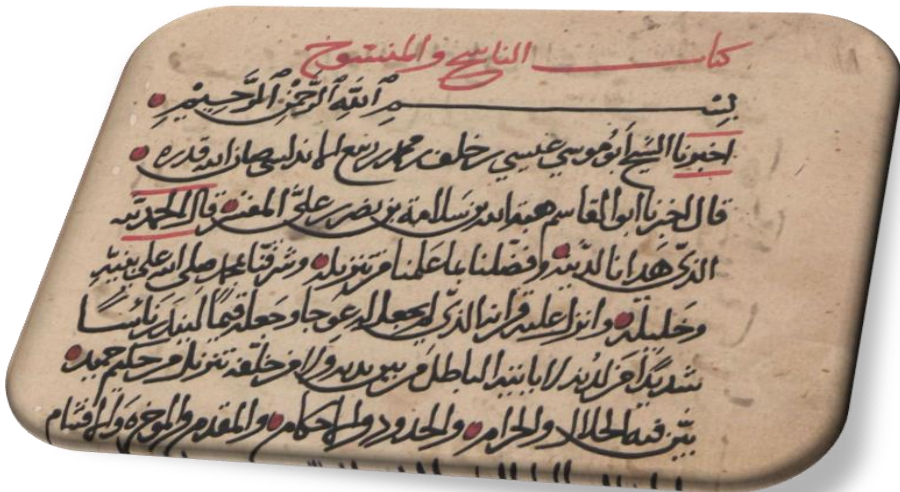 كتاب الناسخ والمنسوخ
بسم الله الرحمن الرحيم
اخبرنا الشيخ أبو موسي عيسي بن خلف بن محمد بن ربيع الاندلسي صان الله قدره
قال اخبرنا ابو القاسم هبة الله بن سلامة بن نصر بن علي المفسر قال الحمد لله
الذي هدانا لدينه وفضلنا بما علمنا من تنزيله وشرفنا بمحمد صلى الله على نبيه
وخليله وانزل عليه قرانا الذي لم يجعل له عوجا وجعله قيما لينذر بأسًا
شديدًا من لدنه لا ياتيه الباطل من بين يديه ولا من خلفه تنزيل من حكيم حميد
بيّن فيه الحلال والحرام والحدود والاحكام والمقدم والموخر والاقسام